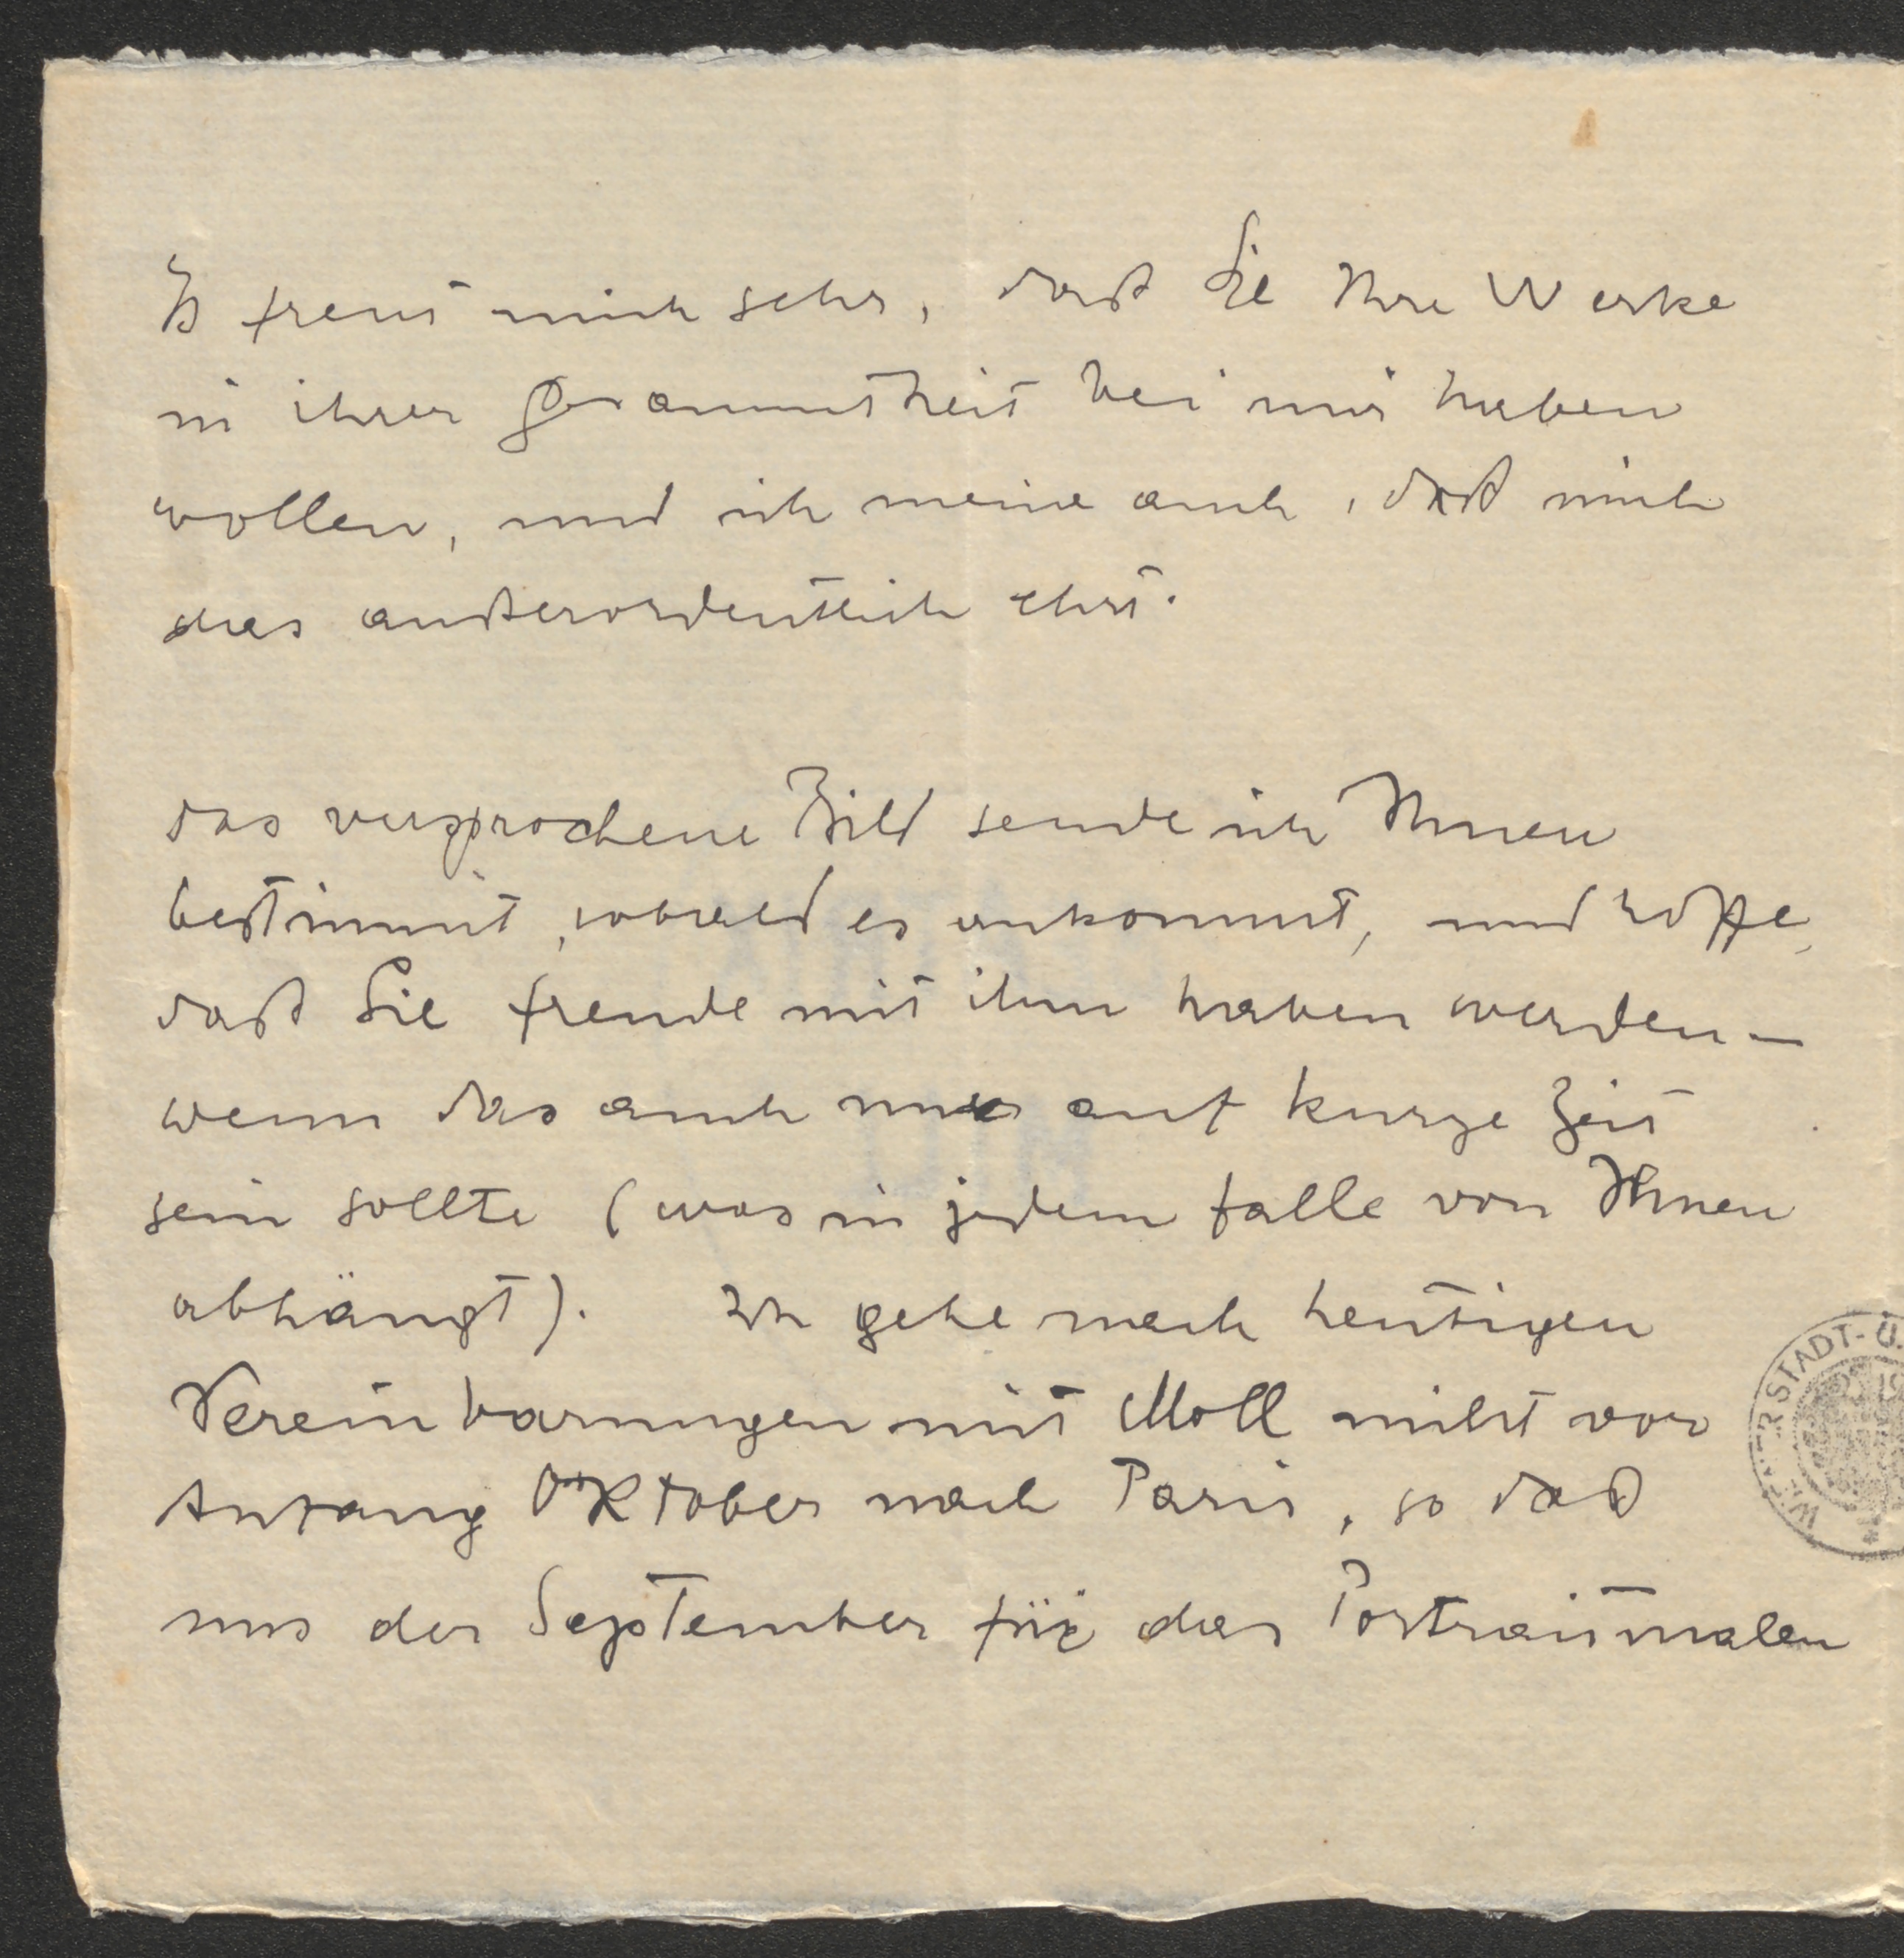 Es freut mich sehr, daß Sie Ihre Werke
in ihrer Gesammtheit bei mir haben
wollen, und ich meine auch, daß mich
das außerordentlich ehrt.
das versprochene Bild sende ich Ihnen
bestimmt, sobald es ankommt, und hoffe,
daß Sie freude mit ihm haben werden –
wenn das auch nur auf kurze Zeit
sein sollte (was in jedem falle von Ihnen
abhängt). Ich gehe nach heutigen
Vereinbarungen mit Moll nicht vor
Anfang Oktober nach Paris, so daß
uns der September für das Portraitmalen
STADT- U.